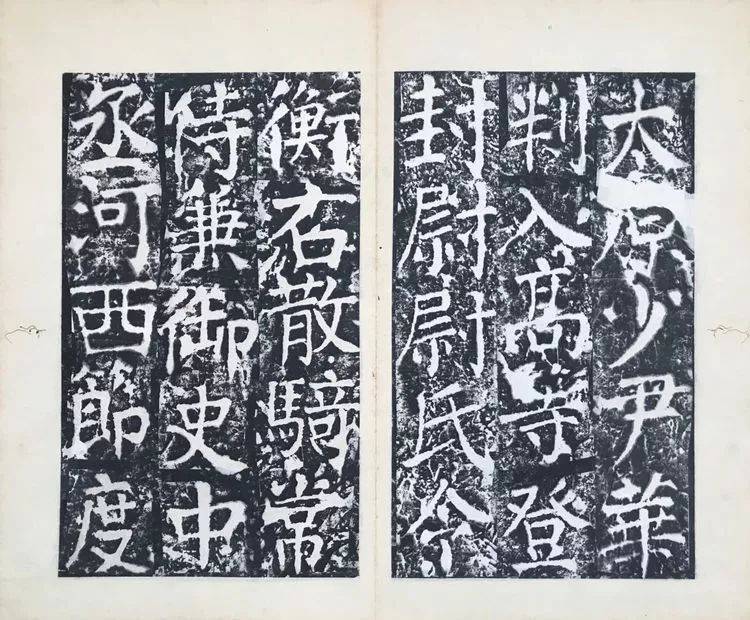 太原少尹華
判入高等登
封尉尉氏令
衡右散騎常
侍兼御史中
丞河西節度